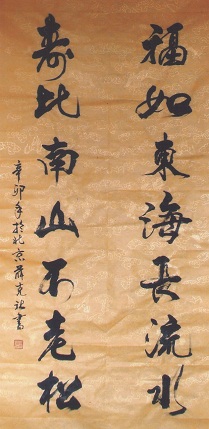 福如東海長流水
壽比南山不老松
辛卯年於北京薛克